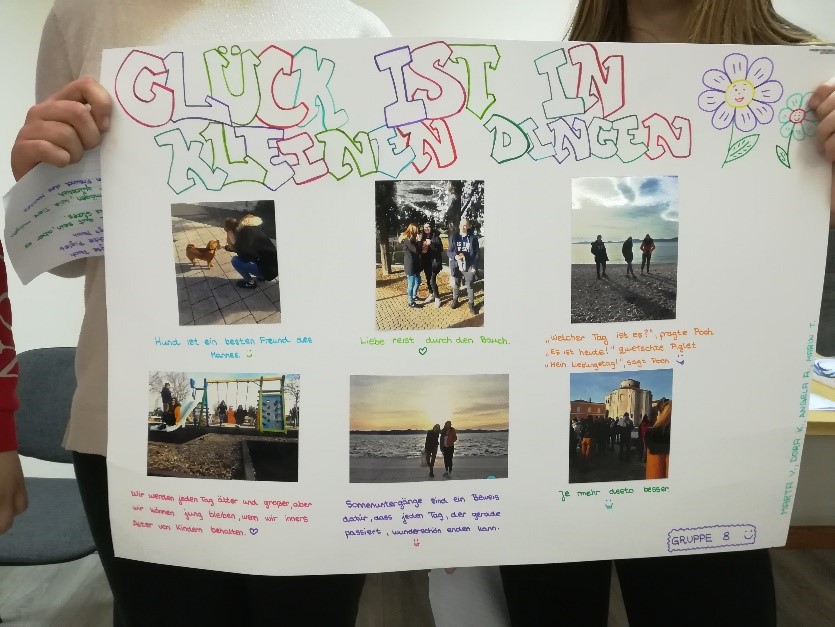 GLÜCK IST IN
KLEINEN DINGEN
Hund ist ein besten Freund des
Mannes.
Liebe reist durch den Bauch.
„Welcher Tag ist es?", fragte Pooh.
„Es ist heute!" quietschte Piglet
„Mein Lieblingstag!", sagt Pooh
Wir werden jeden Tag älter und großer, aber
wir können jung bleiben, wenn wir inners
Alter von Kindern behalten.
Sonnenuntergänge sind ein Beweis
dafür, dass jeden Tag, der gerade
passiert, wunderschön enden kann.
Je mehr desto besser
GRUPPE 8
MARTA V., DORA K., ANĐELA A., MARIN T.